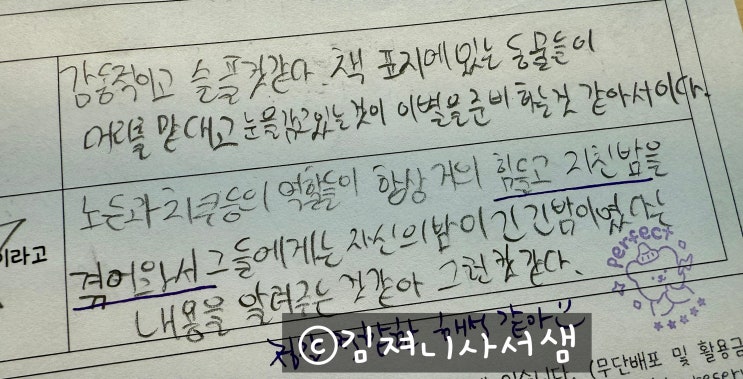 감동적이고 슬플것같다. 책 표지에 있는 동물들이
머리를 맏대고 눈을 감고있는것이 이별을 준비 하는것 같아서이다.
이라고
노든과 치쿠등의 역할들이 항상 거의 힘들고 지친밤을
겪어와서 그들에게는 자신의 밤이 긴긴밤이였다는
내용을 알려주는 것같아 그런 것 같다.
perfect
해석 같아요
ⓒ김져니사서샘
습니다. (무단배포 및 활용금
reserv